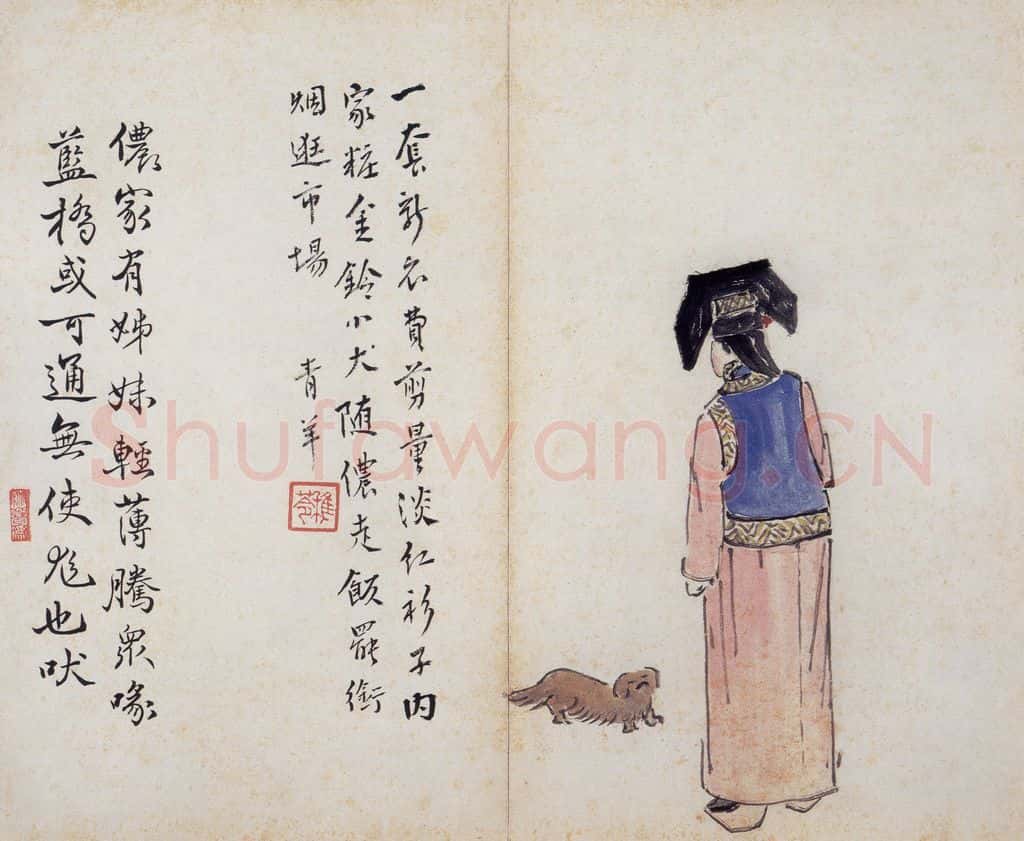 一套新衣費剪量淡红衫子内
家粧金鈴小犬随儂走飯罷銜
烟逛市場
青羊
儂家有姊妹輕薄騰衆喙
藍橋或可通無使尨也吠
Shufawang.CN